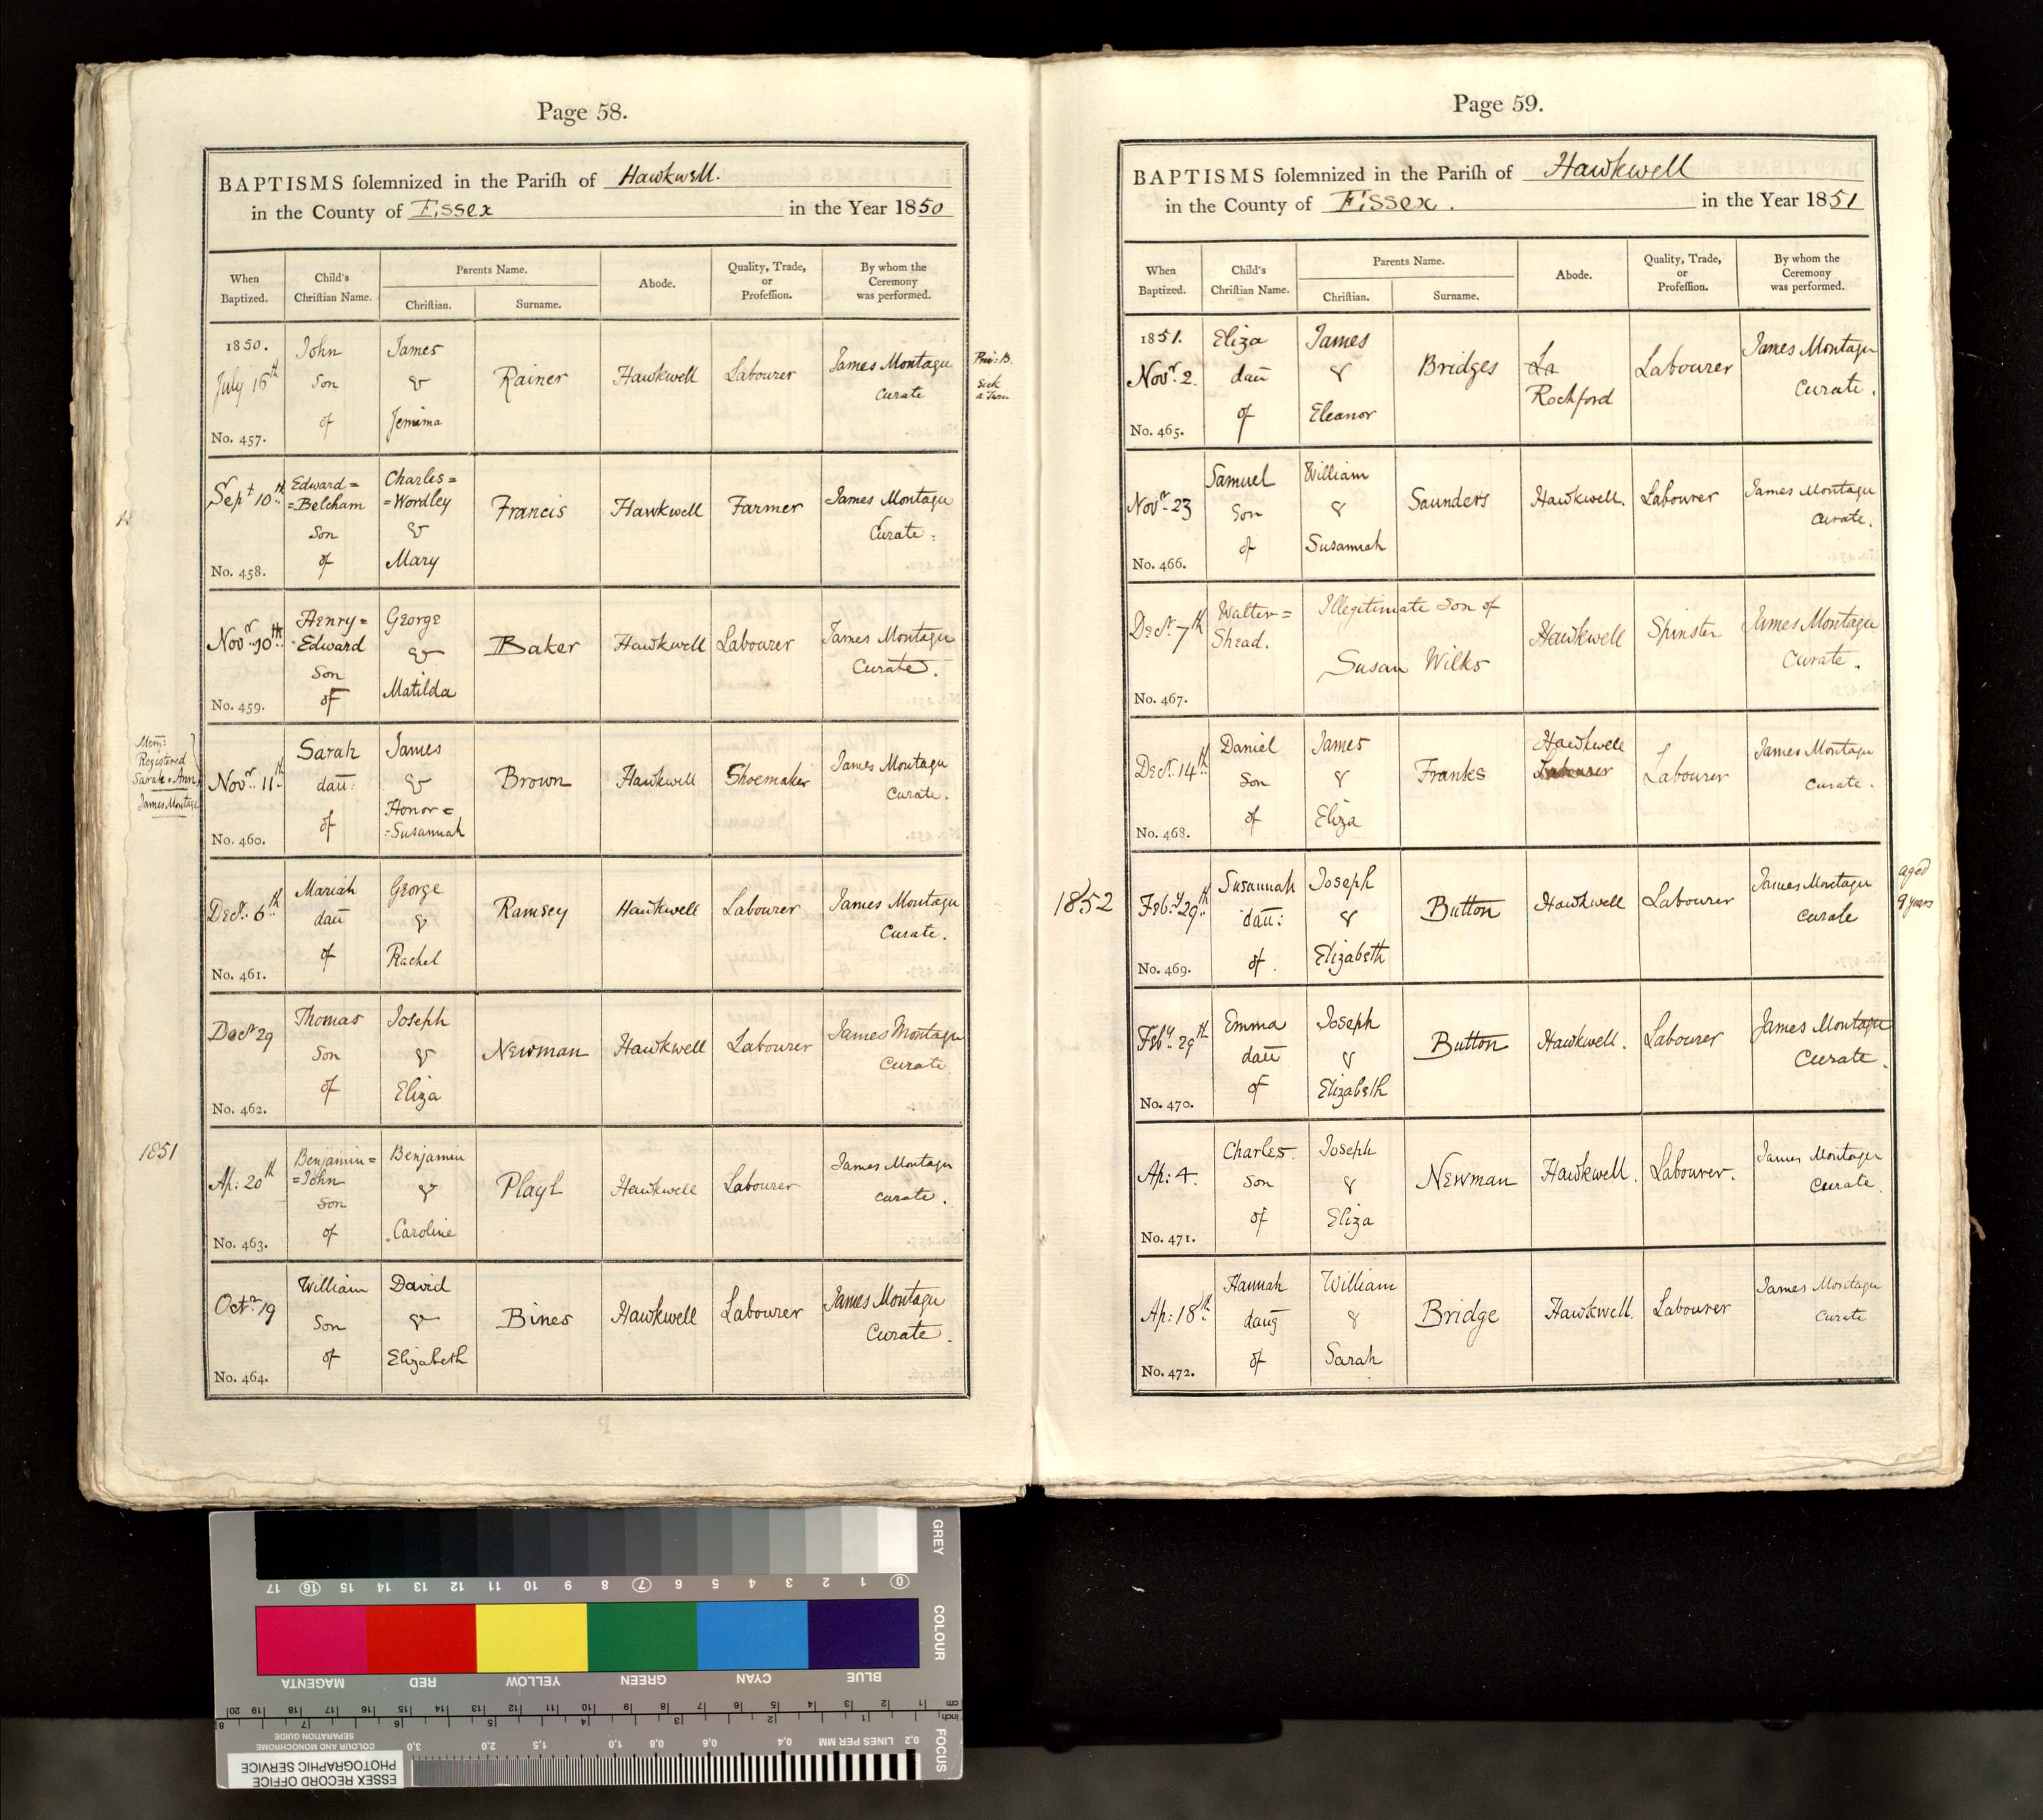 Page 58.
BAPTISMS solemnized in the Parish of Hawkwell.
in the County of Essex in the Year 1850
When Baptized.
Child's Christian Name.
Parents Name.
Christian.
Surname.
Abode.
Quality, Trade, or Profession.
By whom the Ceremony was performed.
1850.
July 16th
No. 457.
John
Son
of
James
&
Jemima
Rainer
Hawkwell
Labourer
James Montagu
Curate
Priv: B.
Sick
Sept 10th
No. 458.
Edward=
=Belcham
Son
of
Charles=
=Wordley
&
Mary
Francis
Hawkwell
Farmer
James Montagu
Curate.
Novr 10th
No. 459.
Henry=
Edward
Son
of
George
&
Matilda
Baker
Hawkwell
Labourer
James Montagu
Curate.
Mem:
Registered
Sarah=Ann
James Montagu
Novr. 11th
No. 460.
Sarah
dau:
of
James
&
Honor=
=Susannah
Brown
Hawkwell
Shoemaker
James Montagu
Curate.
Decr. 6th
No. 461.
Mariah
dau
of
George
&
Rachel
Ramsey
Hawkwell
Labourer
James Montagu
Curate.
Decr 29
No. 462.
Thomas
Son
of
Joseph
&
Eliza
Newman
Hawkwell
Labourer
James Montagu
Curate
1851
Ap: 20th
No. 463.
Benjamin=
=John
Son
of
Benjamin
&
Caroline
Playl
Hawkwell
Labourer
James Montagu
Curate.
Octr. 19
No. 464.
William
Son
of
David
&
Elizabeth
Bines
Hawkwell
Labourer
James Montagu
Curate.
Page 59.
BAPTISMS solemnized in the Parish of Hawkwell
in the County of Essex. in the Year 1851
When Baptized.
Child's Christian Name.
Parents Name.
Christian.
Surname.
Abode.
Quality, Trade, or Profession.
By whom the Ceremony was performed.
1851.
Novr. 2.
No. 465.
Eliza
dau
of
James
&
Eleanor
Bridges
La
Rochford
Labourer
James Montagu
Curate.
Novr. 23
No. 466.
Samuel
Son
of
William
&
Susannah
Saunders
Hawkwell.
Labourer
James Montagu
Curate.
Decr. 7th
No. 467.
Walter=
Shead.
Illegitimate Son of
Susan Wilks
Hawkwell
Spinster
James Montagu
Curate.
Decr. 14th
No. 468.
Daniel
Son
of
James
&
Eliza
Franks
Hawkwell
Labourer
Labourer
James Montagu
Curate.
1852
Feb.y 29th
No. 469.
Susannah
dau:
of.
Joseph
&
Elizabeth
Button
Hawkwell
Labourer
James Montagu
Curate
aged
9 years
Feby. 29th
No. 470.
Emma
dau
of
Joseph
&
Elizabeth
Button
Hawkwell.
Labourer
James Montagu
Curate.
Ap: 4.
No. 471.
Charles
Son
of
Joseph
&
Eliza
Newman
Hawkwell.
Labourer.
James Montagu
Curate.
Ap: 18th
No. 472.
Hannah
daug
of
William
&
Sarah
Bridge
Hawkwell.
Labourer
James Montagu
Curate
GREY
17 16 15 14 13 12 11 10 9 8 7 6 5 4 3 2 1 0
COLOUR
MAGENTA RED YELLOW GREEN CYAN BLUE
cm
inch
FOCUS
LINES PER MM
3,0 2,0 1,5 1,0 0,8 0,6 0,4 0,2
COLOUR AND MONOCHROME
SEPARATION GUIDE
ESSEX RECORD OFFICE
PHOTOGRAPHIC SERVICE